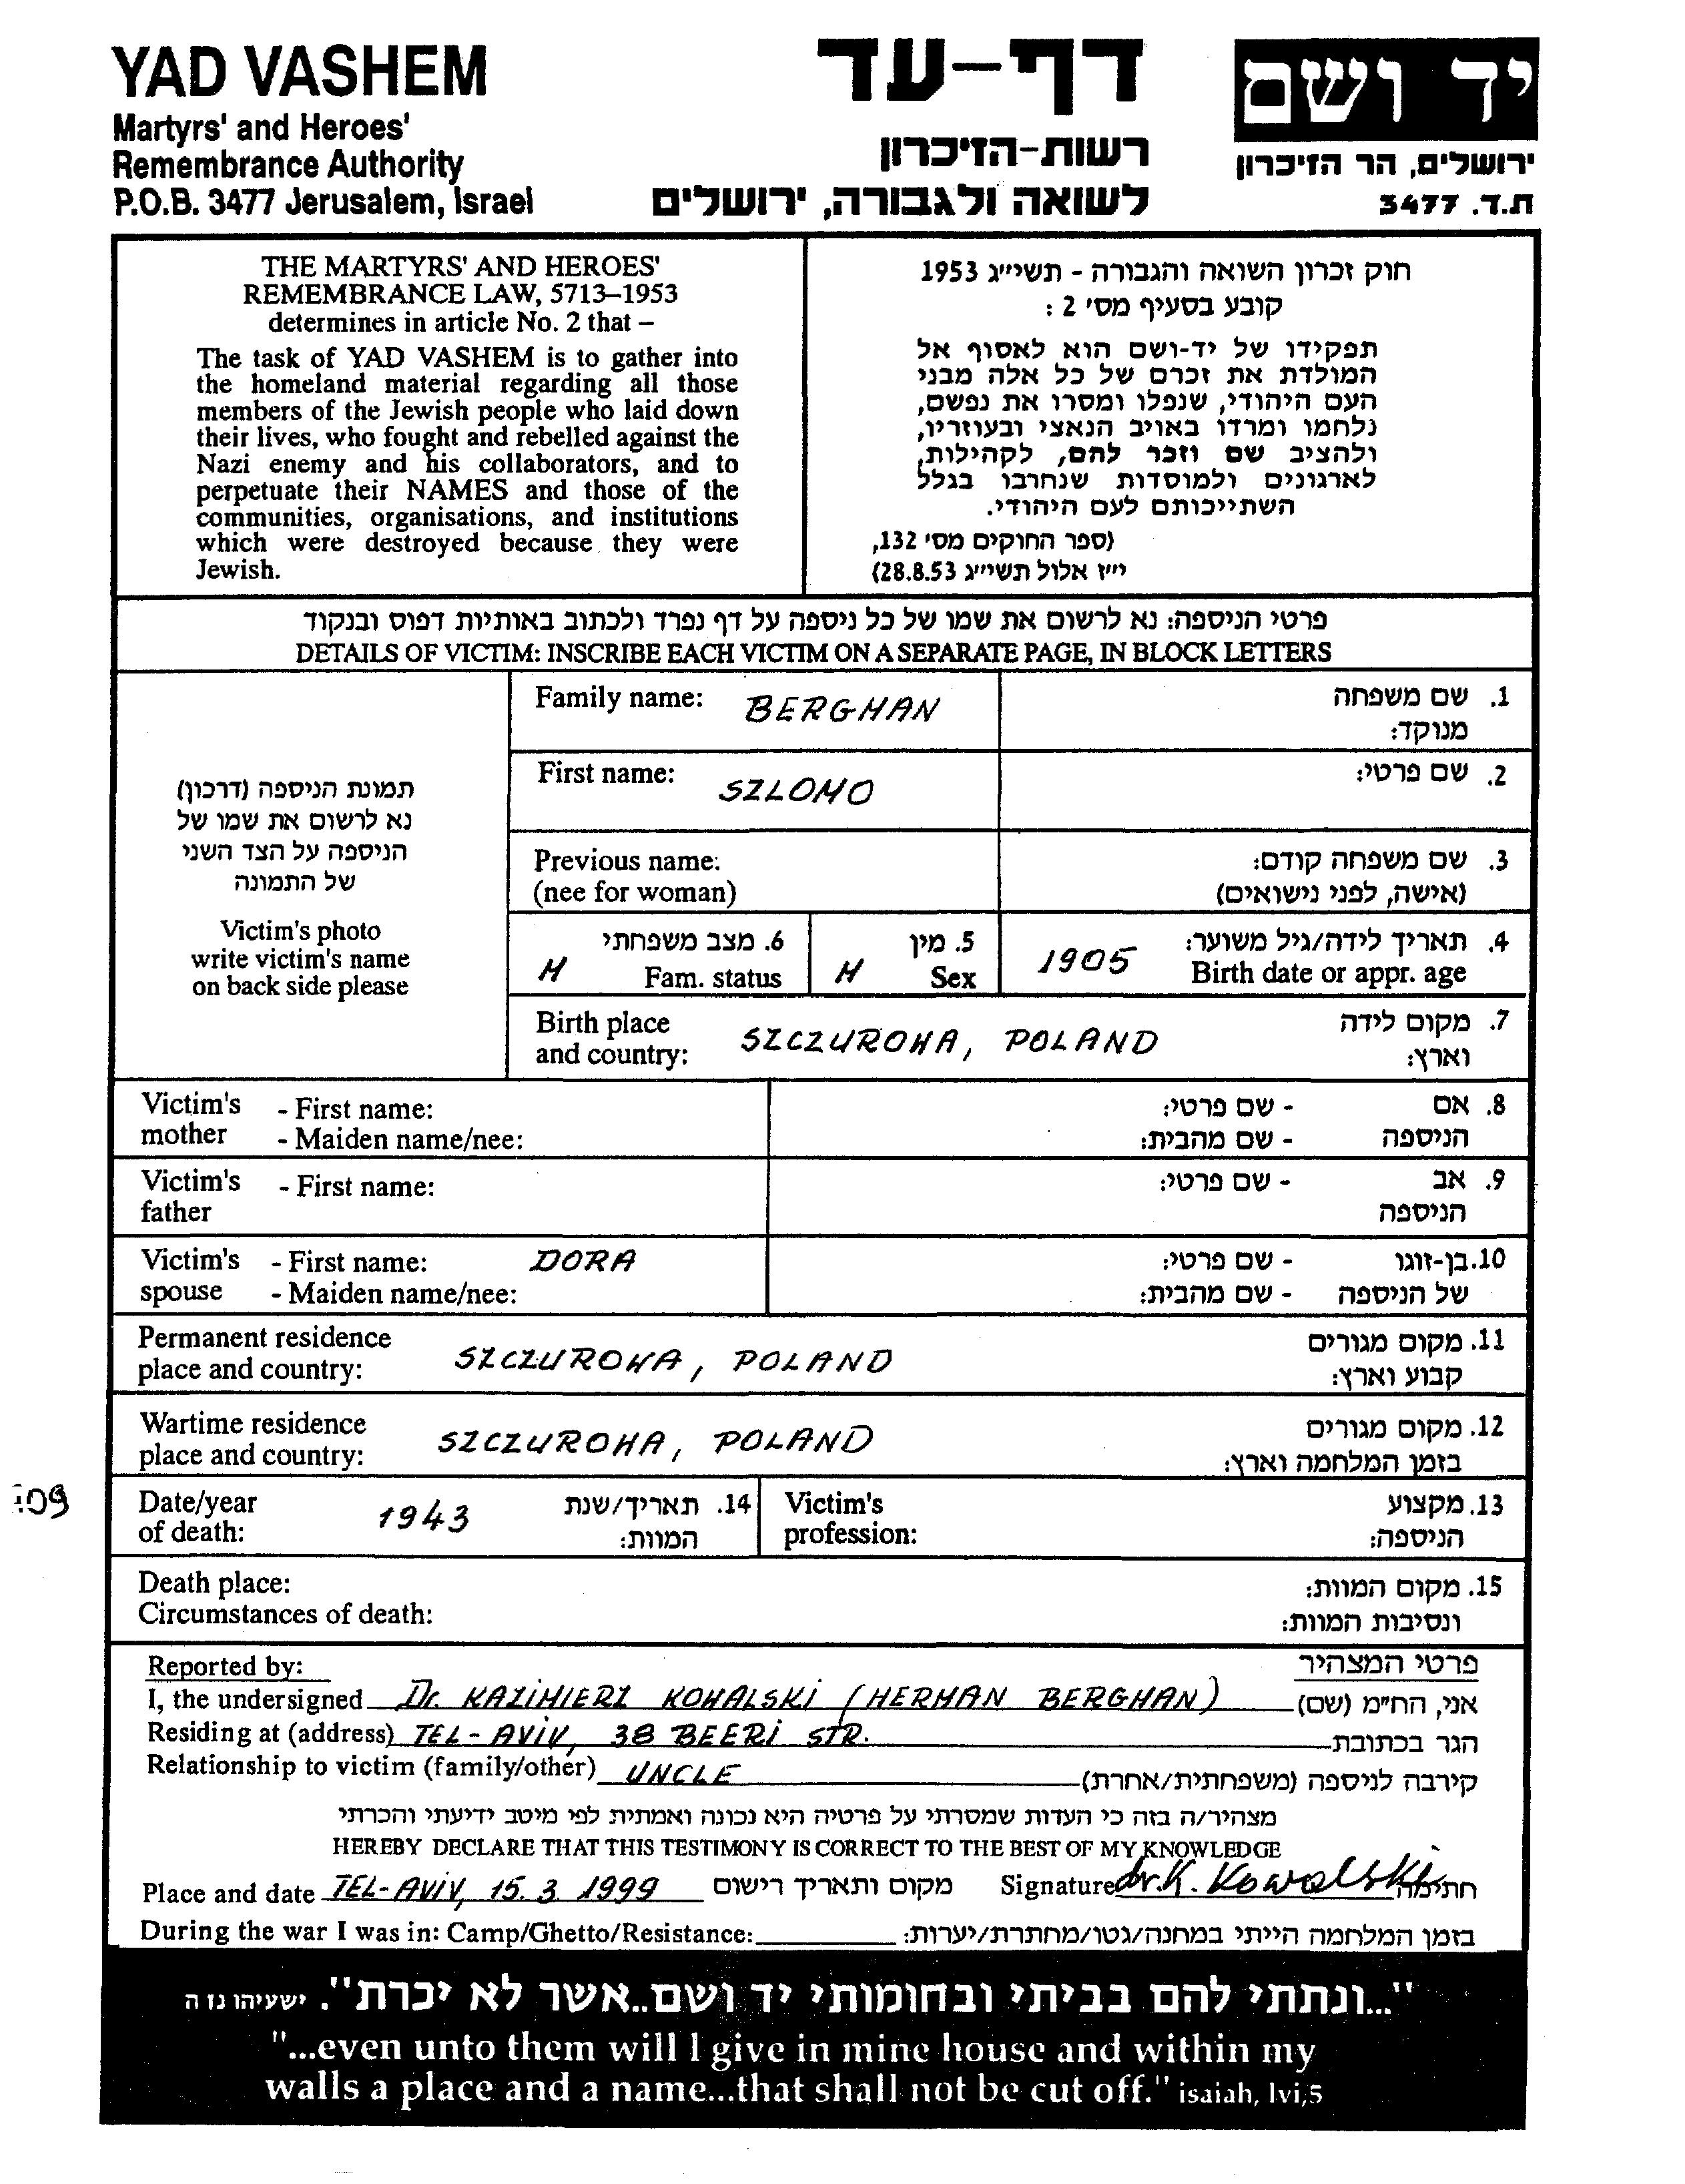 YAD VASHEM
Martyrs' and Heroes'
Remembrance Authority
P.O.B. 3477 Jerusalem, Israel
דף-עד
רשות-הזיכרון
לשואה ולגבורה, ירושלים
יד ושם
ירושלים, הר הזיכרון
ת.ד. 3477
THE MARTYRS' AND HEROES'
REMEMBRANCE LAW, 5713–1953
determines in article No. 2 that –
The task of YAD VASHEM is to gather into
the homeland material regarding all those
members of the Jewish people who laid down
their lives, who fought and rebelled against the
Nazi enemy and his collaborators, and to
perpetuate their NAMES and those of the
communities, organisations, and institutions
which were destroyed because they were
Jewish.
חוק זכרון השואה והגבורה - תשי״ג 1953
קובע בסעיף מס׳ 2 :
תפקידו של יד-ושם הוא לאסוף אל
המולדת את זכרם של כל אלה מבני
העם היהודי, שנפלו ומסרו את נפשם,
נלחמו ומרדו באויב הנאצי ובעוזריו,
ולהציב שם וזכר להם, לקהילות,
לארגונים ולמוסדות שנחרבו בגלל
השתייכותם לעם היהודי.
(ספר החוקים מס׳ 132,
י״ז אלול תשי״ג 28.8.53)
פרטי הניספה: נא לרשום את שמו של כל ניספה על דף נפרד ולכתוב באותיות דפוס ובנקוד
DETAILS OF VICTIM: INSCRIBE EACH VICTIM ON A SEPARATE PAGE, IN BLOCK LETTERS
תמונת הניספה (דרכון)
נא לרשום את שמו של
הניספה על הצד השני
של התמונה
Victim's photo
write victim's name
on back side please
Family name: BERGMAN 1. שם משפחה
מנוקד:
First name: SZLOMO 2. שם פרטי:
Previous name: 3. שם משפחה קודם:
(nee for woman) (אישה, לפני נישואים)
6. מצב משפחתי 5. מין 4. תאריך לידה/גיל משוער:
M Fam. status M Sex 1905 Birth date or appr. age
Birth place 7. מקום לידה
and country: SZCZUROWA, POLAND וארץ:
Victim's - First name: - שם פרטי: 8. אם
mother - Maiden name/nee: - שם מהבית: הניספה
Victim's - First name: - שם פרטי: 9. אב
father הניספה
Victim's - First name: DORA - שם פרטי: 10. בן-זוגו
spouse - Maiden name/nee: - שם מהבית: של הניספה
Permanent residence 11. מקום מגורים
place and country: SZCZUROWA, POLAND קבוע וארץ:
Wartime residence 12. מקום מגורים
place and country: SZCZUROWA, POLAND בזמן המלחמה וארץ:
Date/year 14. תאריך/שנת Victim's 13. מקצוע
of death: 1943 המוות: profession: הניספה:
Death place: 15. מקום המוות:
Circumstances of death: ונסיבות המוות:
Reported by: פרטי המצהיר
I, the undersigned Dr. KAZIMIERZ KOWALSKI (HERMAN BERGMAN) אני, הח״מ (שם)
Residing at (address) TEL-AVIV, 38 BEERI STR. הגר בכתובת
Relationship to victim (family/other) UNCLE קירבה לניספה (משפחתית/אחרת)
מצהיר/ה בזה כי העדות שמסרתי על פרטיה היא נכונה ואמתית לפי מיטב ידיעתי והכרתי
HEREBY DECLARE THAT THIS TESTIMONY IS CORRECT TO THE BEST OF MY KNOWLEDGE
Place and date TEL-AVIV, 15.3 1999 מקום ותאריך רישום Signature dr. K. Kowalski חתימה
During the war I was in: Camp/Ghetto/Resistance: בזמן המלחמה הייתי במחנה/גטו/מחתרת/יערות:
"...ונתתי להם בביתי ובחומותי יד ושם..אשר לא יכרת". ישעיהו נו ה
"...even unto them will I give in mine house and within my
walls a place and a name...that shall not be cut off." isaiah, lvi,5